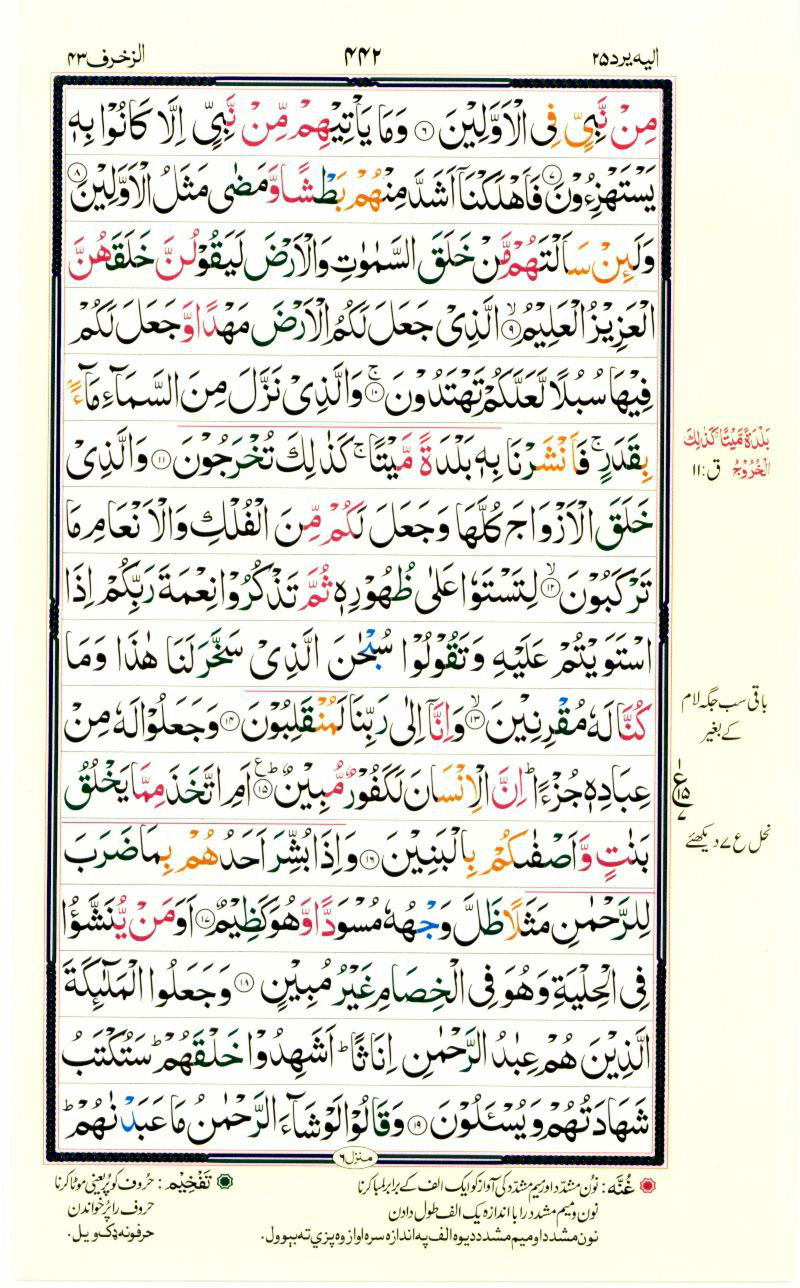 الیه یرد ۲۵
۴۴۲
الزخرف ۴۳
مِنْ نَّبِیٍّ فِی الْاَوَّلِیْنَ ۶ وَمَا یَاْتِیْهِمْ مِّنْ نَّبِیٍّ اِلَّا كَانُوْا بِهٖ
یَسْتَهْزِءُوْنَ ۷ فَاَهْلَكْنَاۤ اَشَدَّ مِنْهُمْ بَطْشًا وَّمَضٰی مَثَلُ الْاَوَّلِیْنَ ۸
وَلَئِنْ سَاَلْتَهُمْ مَّنْ خَلَقَ السَّمٰوٰتِ وَالْاَرْضَ لَیَقُوْلُنَّ خَلَقَهُنَّ
الْعَزِیْزُ الْعَلِیْمُ ۙ۹ الَّذِیْ جَعَلَ لَكُمُ الْاَرْضَ مَهْدًا وَّجَعَلَ لَكُمْ
فِیْهَا سُبُلًا لَّعَلَّكُمْ تَهْتَدُوْنَ ۚ۱۰ وَالَّذِیْ نَزَّلَ مِنَ السَّمَآءِ مَآءًۢ
بِقَدَرٍ ۚ فَاَنْشَرْنَا بِهٖ بَلْدَةً مَّیْتًا ۚ كَذٰلِكَ تُخْرَجُوْنَ ۱۱ وَالَّذِیْ
بَلْدَةً مَّیْتًا كَذٰلِكَ
الْخُرُوْجُ ق:۱۱
خَلَقَ الْاَزْوَاجَ كُلَّهَا وَجَعَلَ لَكُمْ مِّنَ الْفُلْكِ وَالْاَنْعَامِ مَا
تَرْكَبُوْنَ ۙ۱۲ لِتَسْتَوٗا عَلٰی ظُهُوْرِهٖ ثُمَّ تَذْكُرُوْا نِعْمَةَ رَبِّكُمْ اِذَا
اسْتَوَیْتُمْ عَلَیْهِ وَتَقُوْلُوْا سُبْحٰنَ الَّذِیْ سَخَّرَ لَنَا هٰذَا وَمَا
كُنَّا لَهٗ مُقْرِنِیْنَ ۙ۱۳ وَاِنَّاۤ اِلٰی رَبِّنَا لَمُنْقَلِبُوْنَ ۱۴ وَجَعَلُوْا لَهٗ مِنْ
باقی سب جگہ لام
کے بغیر
عِبَادِهٖ جُزْءًا ؕ اِنَّ الْاِنْسَانَ لَكَفُوْرٌ مُّبِیْنٌ ؕ۱۵ اَمِ اتَّخَذَ مِمَّا یَخْلُقُ
ع
۱۵
۷
بَنٰتٍ وَّاَصْفٰىكُمْ بِالْبَنِیْنَ ۱۶ وَاِذَا بُشِّرَ اَحَدُهُمْ بِمَا ضَرَبَ
نحل ع ۷ دیکھئے
لِلرَّحْمٰنِ مَثَلًا ظَلَّ وَجْهُهٗ مُسْوَدًّا وَّهُوَ كَظِیْمٌ ۱۷ اَوَمَنْ یُّنَشَّؤُا
فِی الْحِلْیَةِ وَهُوَ فِی الْخِصَامِ غَیْرُ مُبِیْنٍ ۱۸ وَجَعَلُوا الْمَلٰٓئِكَةَ
الَّذِیْنَ هُمْ عِبٰدُ الرَّحْمٰنِ اِنَاثًا ؕ اَشَهِدُوْا خَلْقَهُمْ ؕ سَتُكْتَبُ
شَهَادَتُهُمْ وَیُسْـَٔلُوْنَ ۱۹ وَقَالُوْا لَوْ شَآءَ الرَّحْمٰنُ مَا عَبَدْنٰهُمْ ؕ
منزل ۶
غُنَّه: نون مشدد اور میم مشدد کی آواز کو ایک الف کے برابر لمبا کرنا
نون و میم مشدد را با اندازه یک الف طول دادن
نون مشدد او میم مشدد د یوه الف په اندازه سره اواز وه پزې ته ببوول.
تَفْخِیْم: حروف کو پُر یعنی موٹا کرنا
حروف را پُر خواندن
حرفونه ډک ویل.